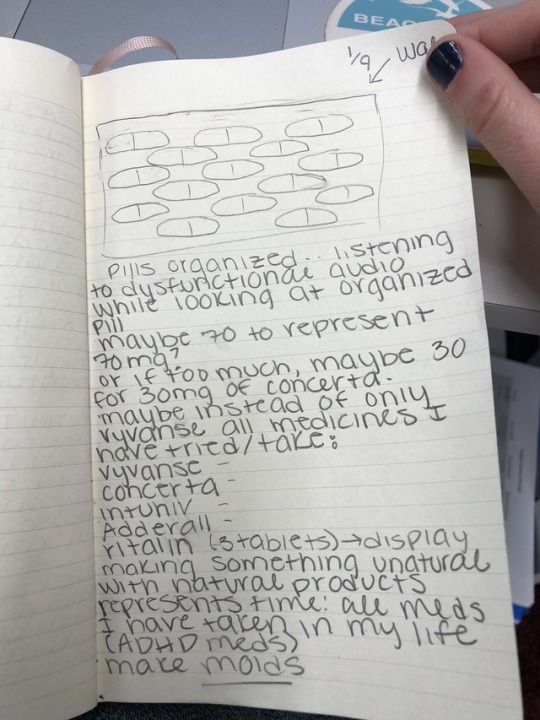 BEAC
1/9
pills organized.. listening
to dysfunctional audio
while looking at organized
pill
maybe 70 to represent
70mg?
or if too much, maybe 30
for 30mg of concerta.
maybe instead of only
vyvanse all medicines I
have tried/take:
vyvanse -
concerta -
intuniv -
Adderall -
ritalin (3 tablets)→display
making something unatural
with natural products
represents time: all meds
I have taken in my life
(ADHD meds)
make molds